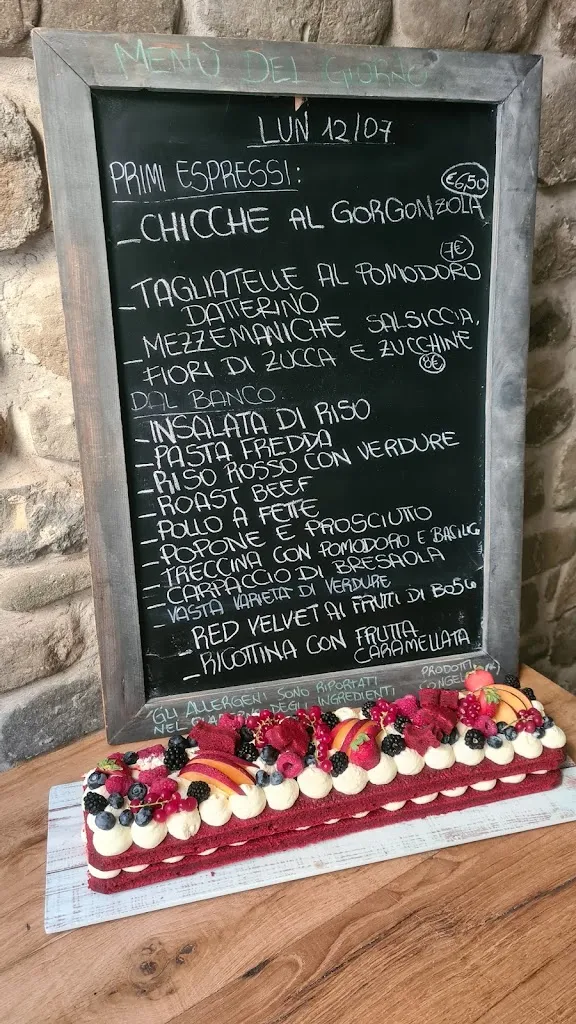 MENÙ DEL GIORNO
LUN 12/07
PRIMI ESPRESSI:
€6,50
_CHICCHE AL GORGONZOLA
7€
_TAGLIATELLE AL POMODORO
DATTERINO
_MEZZEMANICHE SALSICCIA,
FIORI DI ZUCCA E ZUCCHINE
8€
DAL BANCO
_INSALATA DI RISO
_PASTA FREDDA
_RISO ROSSO CON VERDURE
_ROAST BEEF
_POLLO A FETTE
_POPONE E PROSCIUTTO
_TRECCINA CON POMODORO E BASILICO
_CARPACCIO DI BRESAOLA
_VASTA VARIETÀ DI VERDURE
RED VELVET AI FRUTTI DI BOSCO
_RICOTTINA CON FRUTTA
CARAMELLATA
*GLI ALLERGENI SONO RIPORTATI
DEGLI INGREDIENTI
PRODOTTI